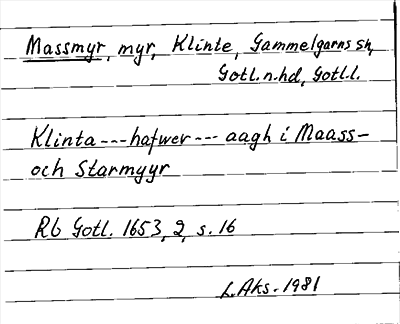 Massmyr, myr, Klinte, Gammelgarns sn,
Gotl.n.hd, Gotl.l.
Klinta --- hafwer --- aagh i Maass-
och Starmyyr
Rb Gotl. 1653, 2, s. 16
L.Aks. 1981